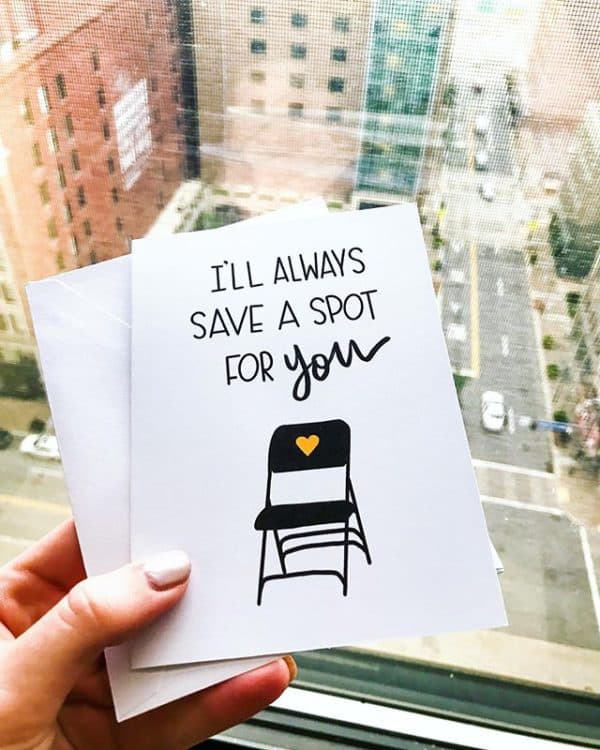 I'LL ALWAYS
SAVE A SPOT
FOR you